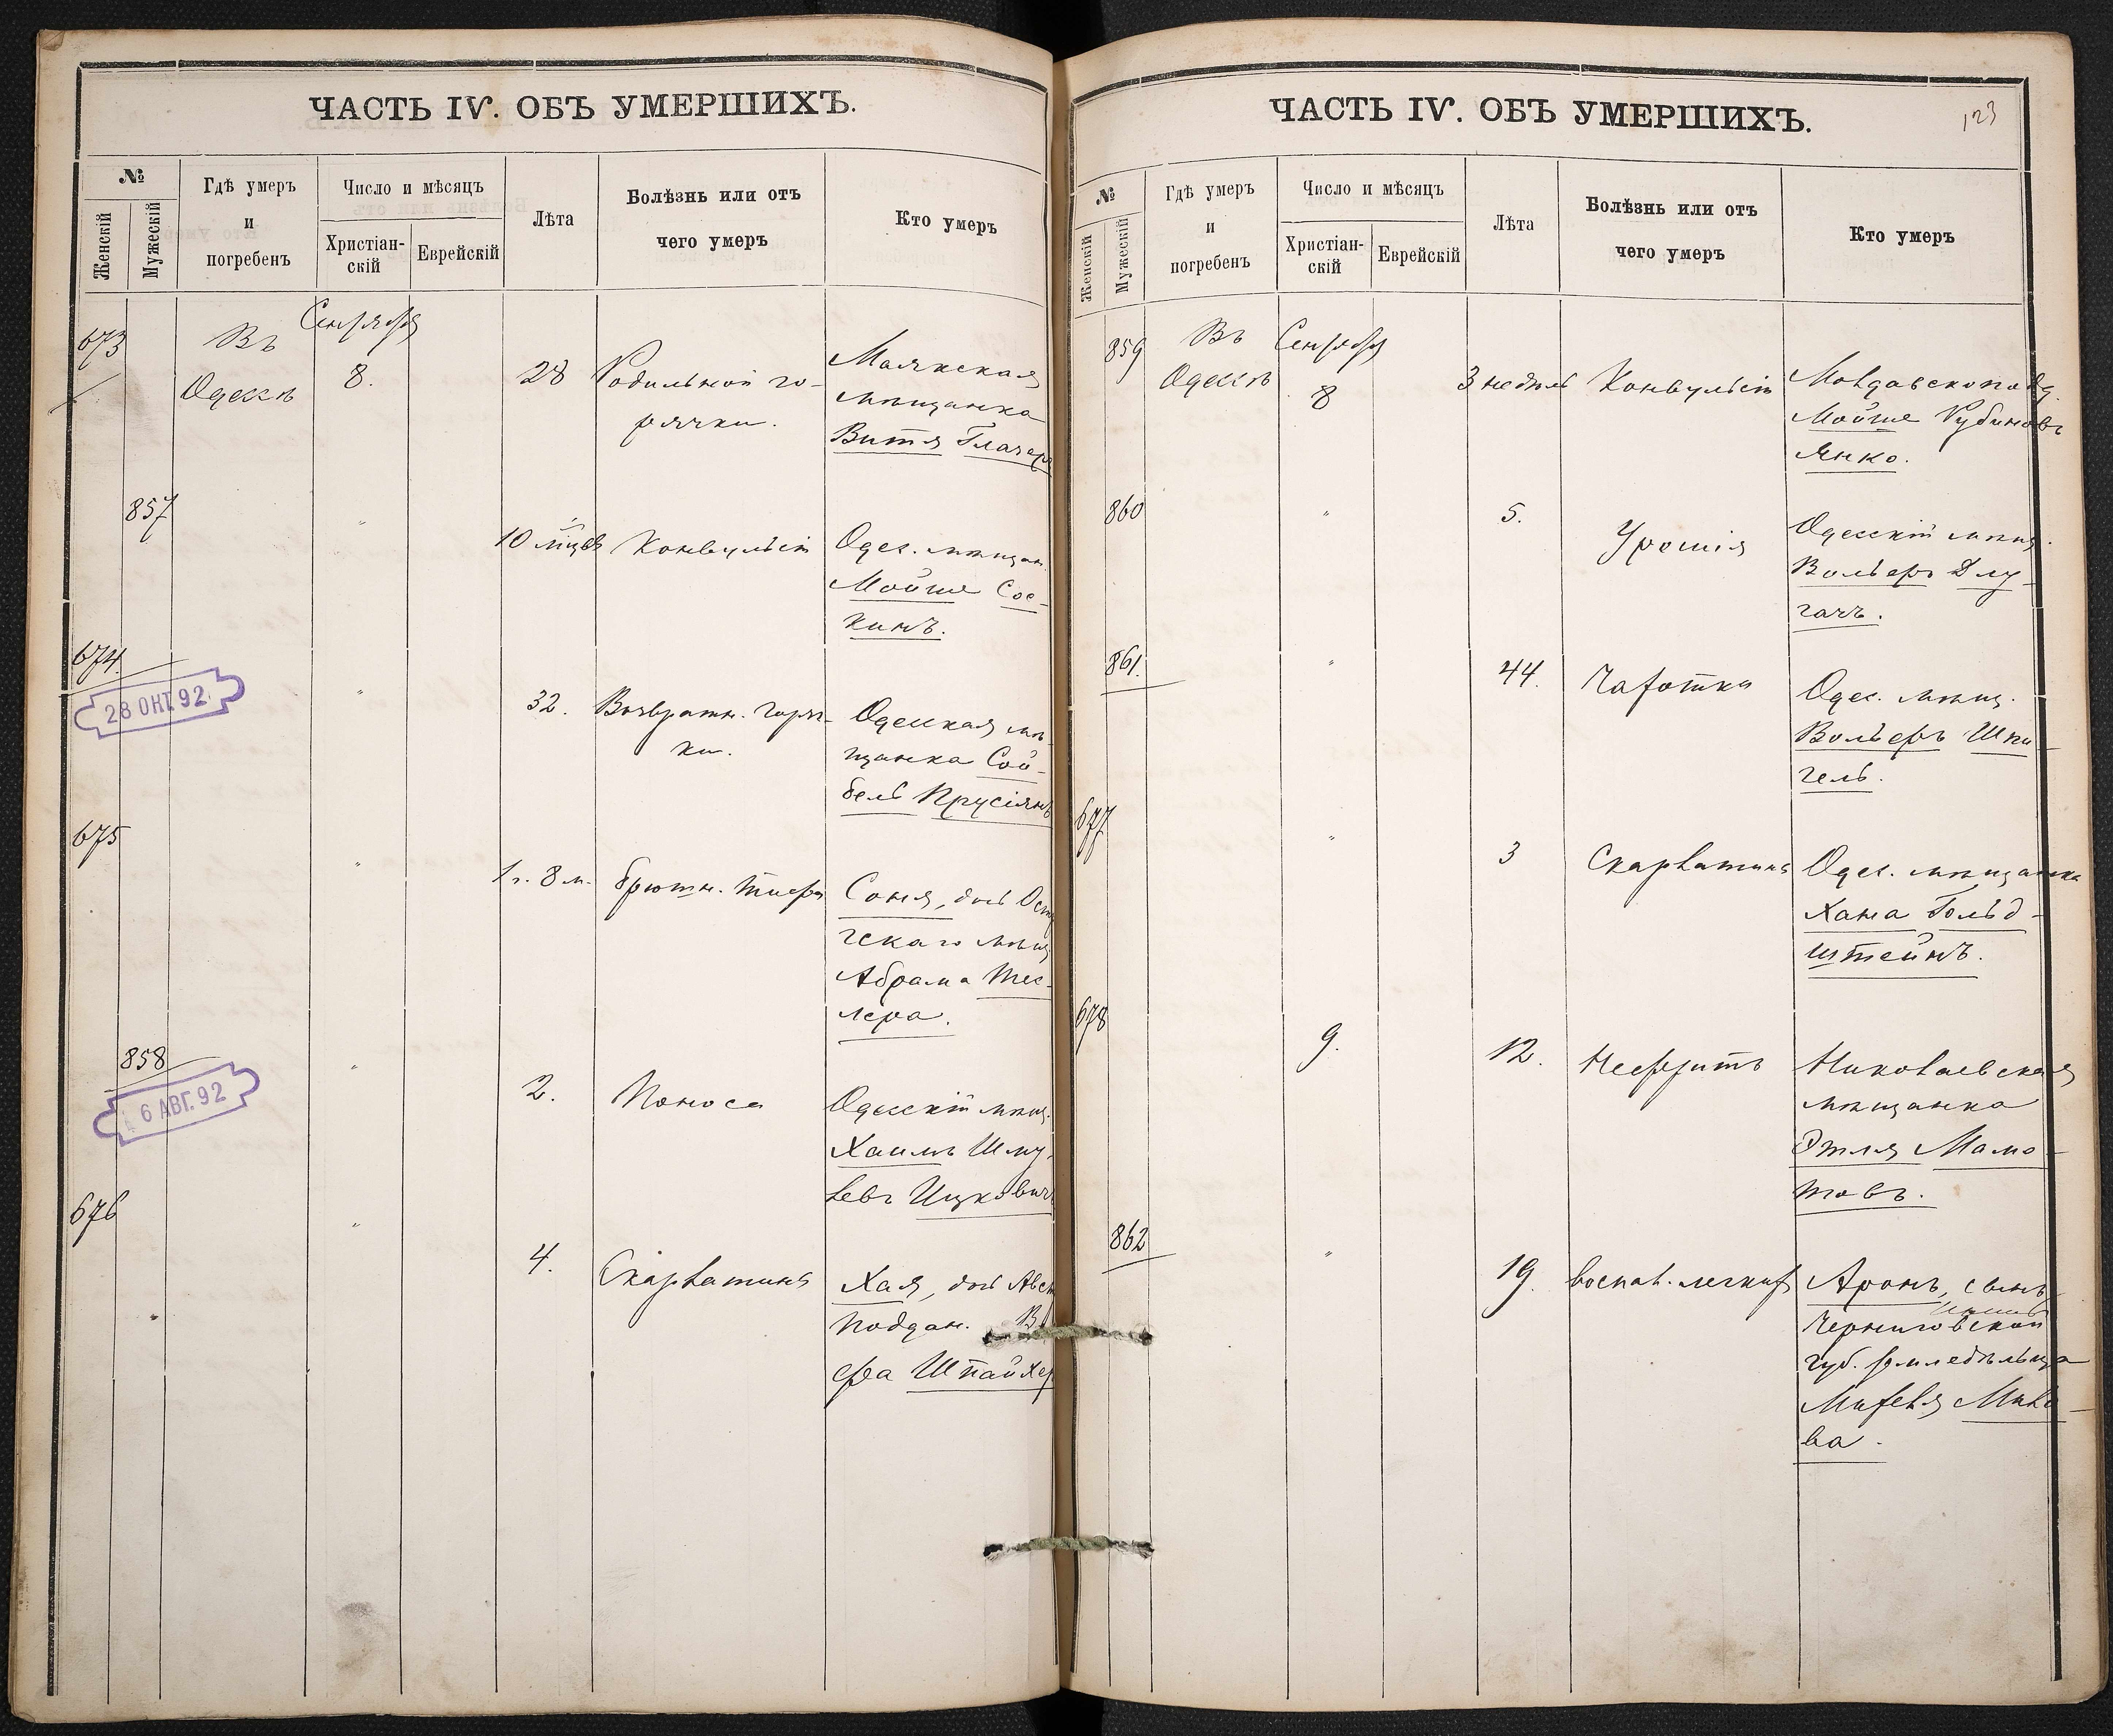 ЧАСТЬ IV. ОБЪ УМЕРШИХЪ.
№
Женскій
Мужескій
Гдѣ умеръ
и
погребенъ
Число и мѣсяцъ
Христіан-
скій
Еврейскій
Лѣта
Болѣзнь или отъ
чего умеръ
Кто умеръ
673
Въ
Одессѣ
Сентября
8.
28
Родильной го-
рячки.
Маякская
мѣщанка
Витя Глазер
857
"
10 м-цевъ
Конвульсіи
Одес. мѣщан.
Мойше Сос-
кинъ.
674
28 ОКТ. 92
"
32.
Возвратн. горяч-
ки.
Одесская мѣ-
щанка Сой-
бель Прусіянъ
675
"
1 г. 8 м.
брюшн. тифа
Соня, дочь
ческаго мѣщ
Абрама Тес-
лера.
858
6 АВГ. 92
"
2.
Поноса
Одесскій мѣщ.
Хаимъ Шму-
левъ Ицкович
676
"
4.
Скарлатина
Хая, дочь Авст
поддан. В
фа Шпайхер
ЧАСТЬ IV. ОБЪ УМЕРШИХЪ.
123
№
Женскій
Мужескій
Гдѣ умеръ
и
погребенъ
Число и мѣсяцъ
Христіан-
скій
Еврейскій
Лѣта
Болѣзнь или отъ
чего умеръ
Кто умеръ
859
Въ
Одессѣ
Сентября
8
3 недѣль
Конвульсіи
Молдавскоподд.
Мойше Рубиновъ
Янко.
860
"
5.
Уремія
Одесскій мѣщ.
Вольфъ Длу-
гачъ.
861.
"
44.
Чахотки
Одес. мѣщ.
Вольфъ Шпи-
гель.
677
"
3
Скарлатина
Одес. мѣщанка
Хана Гольд-
штейнъ.
678
9.
12.
Нефритъ
Николаевская
мѣщанка
Этля Мамо-
товъ.
862
"
19.
воспал. легких
Аронъ, сынъ
Черниговской
губ. земледѣльца
Михеля
ва.